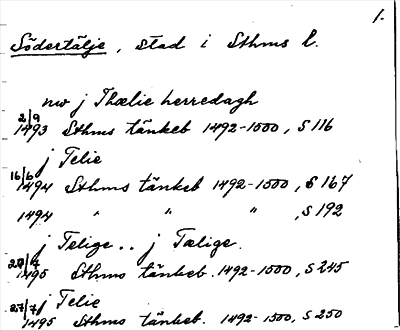 1.
Södertälje, stad i Sthms l.
nw j Thælie herredagh
2/9
1493 Sthms tänkeb 1492-1500, S 116
j Telie
16/6
1494 Sthms tänkeb 1492-1500, S 167
1494 " " " , S 192
j Telige .. j Tælige.
1495 Sthms tänkeb. 1492-1500, S 245
j Telie
27/7
1495 Sthms tänkeb. 1492-1500, S 250